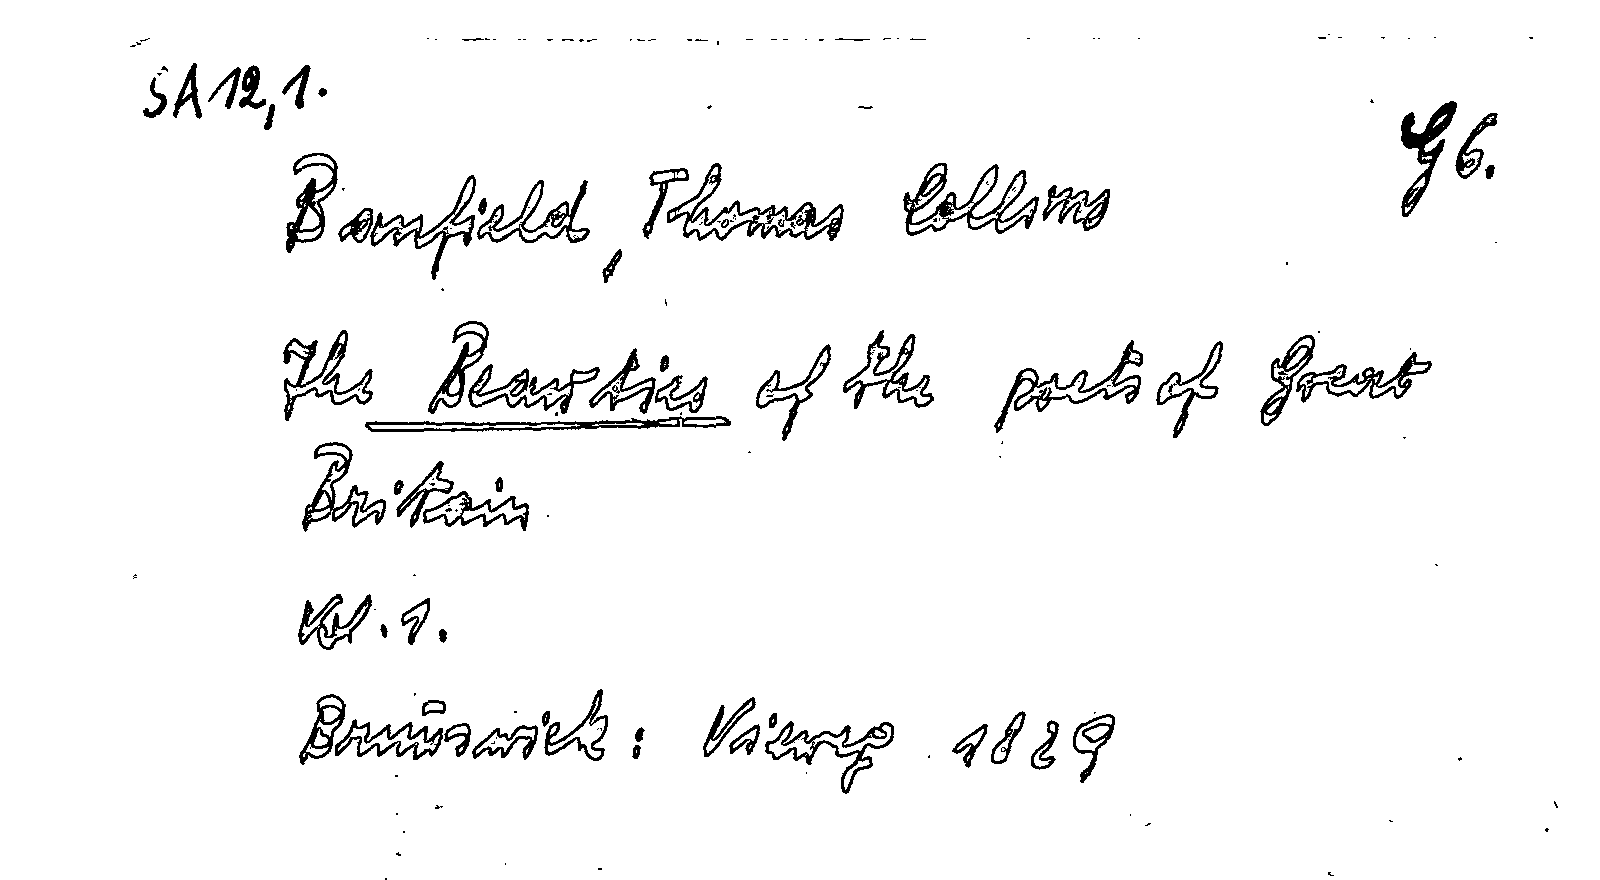 SA 12,1.
G 6.
Banfield, Thomas Collins
The Beauties of the poets of Great
Britain
Vol. 1.
Brunswick: Vieweg 1829